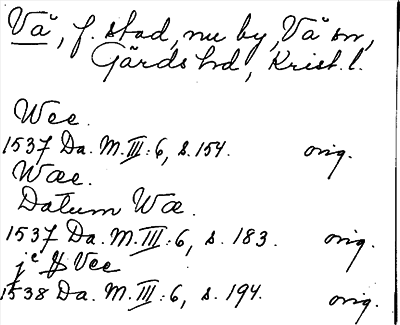 Vä, f. stad, nu by, Vä sn,
Gärds hd, Krist. l.
Wee.
1537 Da. M. III: 6, s. 154. orig.
Wæ.
Datum Wæ.
1537 Da. M. III: 6, s. 183. orig.
Vee
1538 Da. M. III: 6, s. 194. orig.